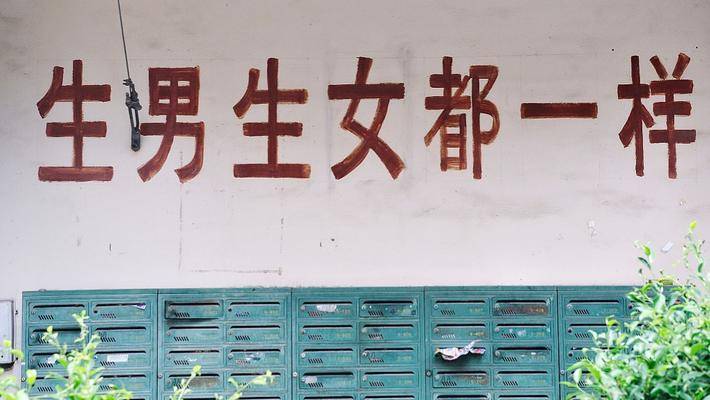 生男生女都一样